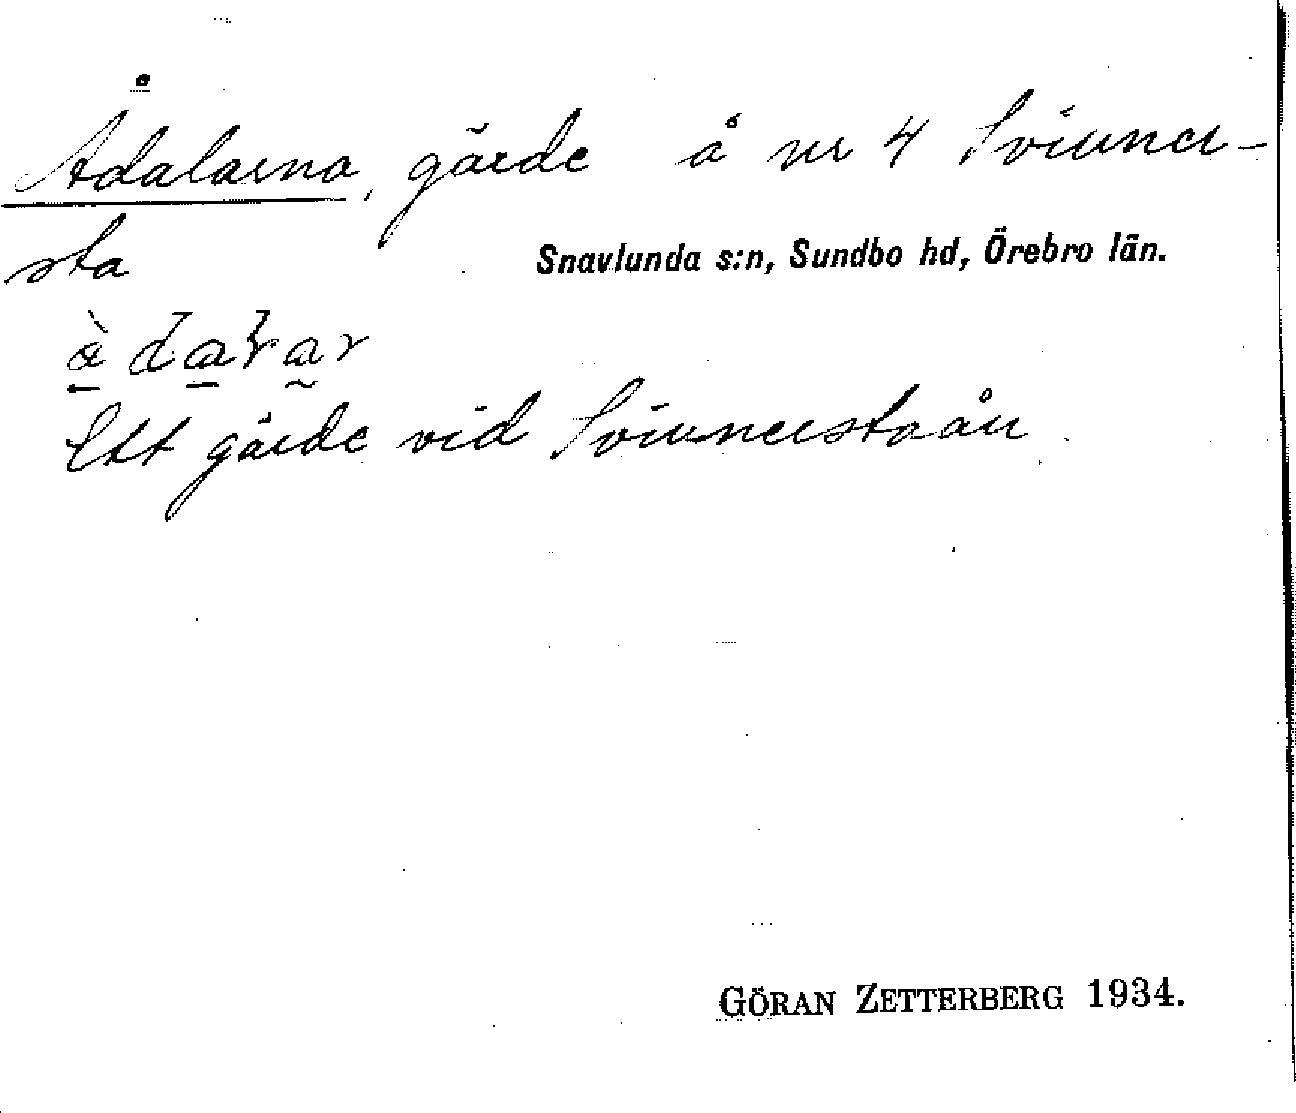 Ådalarna, gärde å nr 4 Svinner-
sta
Snavlunda s:n, Sundbo hd, Örebro län.
Ett gärde vid Svinnerstaån.
GÖRAN ZETTERBERG 1934.